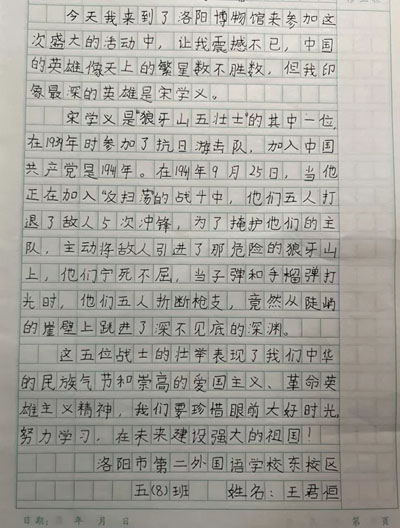 今天我来到了洛阳博物馆来参加这
次盛大的活动中，让我震撼不已，中国
的英雄像天上的繁星数不胜数，但我印
象最深的英雄是宋学义。
宋学义是"狼牙山五壮士"的其中一位，
在1939年时参加了抗日游击队，加入中国
共产党是1941年。在1941年9月25日，当他
正在加入"反扫荡"的战斗中，他们五人打
退了敌人5次冲锋，为了掩护他们的主
队，主动将敌人引进了那危险的狼牙山
上，他们宁死不屈，当子弹和手榴弹打
光时，他们五人折断枪支，竟然从陡峭
的崖壁上跳进了深不见底的深渊。
这五位战士的壮举表现了我们中华
的民族气节和崇高的爱国主义、革命英
雄主义精神，我们要珍惜眼前大好时光，
努力学习，在未来建设强大的祖国！
洛阳市第二外国语学校东校区
五(8)班 姓名：王君恒
日期： 年 月 日 第 页